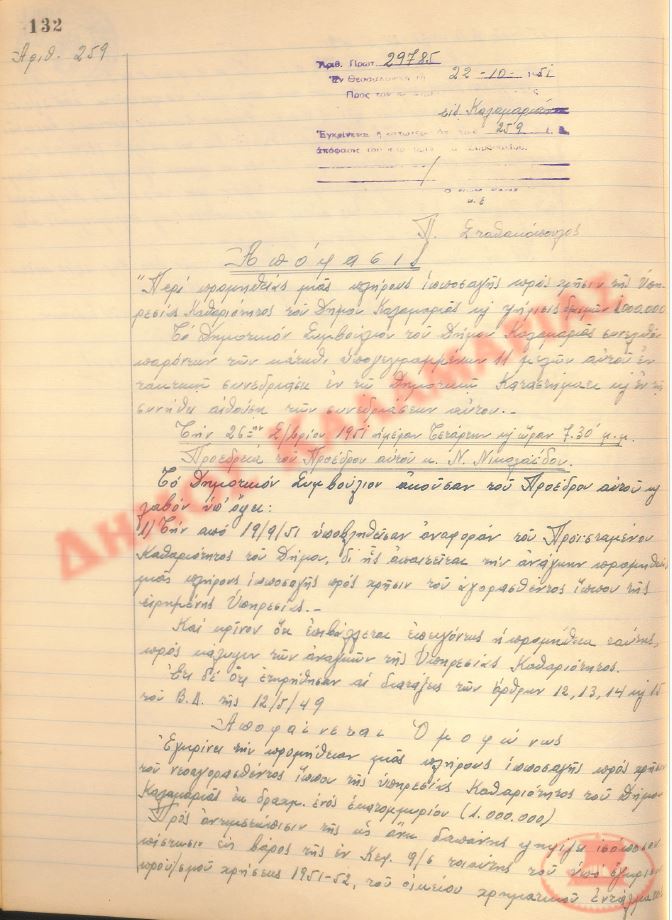 132
Ἀριθ. 259
Ἀριθ. Πρωτ. 29785
Ἐν Θεσσαλονίκῃ τῇ 22-10-1951
Πρὸς τὸν
Καλαμαριᾶς
Ἐγκρίνεται ἡ 259
Π. Σταθακόπουλος
Ἀπόφασις
"Περὶ προμηθείας μιᾶς πλήρους ἱπποσαγῆς πρὸς χρῆσιν τῆς Ὑπη-
ρεσίας Καθαριότητος τοῦ Δήμου Καλαμαριᾶς κ ψήφισις δραχμῶν 1000.000
Τὸ Δημοτικὸν Συμβούλιον τοῦ Δήμου Καλαμαριᾶς συνελθὸν
παρόντων τῶν κάτωθι ὑπογεγραμμένων 11 μελῶν αὐτοῦ ἐν
τακτικῇ συνεδριάσει ἐν τῷ Δημοτικῷ Καταστήματι κ ἐν τῇ
συνήθει αἰθούσῃ τῶν συνεδριάσεων αὐτοῦ.-
Τὴν 26ην 7/βρίου 1951 ἡμέραν Τετάρτην κ ὥραν 7.30' μ.μ.
Προεδρείᾳ τοῦ Προέδρου αὐτοῦ κ. Ν. Νικολαΐδου.
Τὸ Δημοτικὸν Συμβούλιον ἀκοῦσαν τοῦ Προέδρου αὐτοῦ κ
λαβὸν ὑπ' ὄψει:
1) Τὴν ἀπὸ 19/9/51 ὑποβληθεῖσαν ἀναφορὰν τοῦ Προϊσταμένου
Καθαριότητος τοῦ Δήμου, δι' ἧς τὴν ἀνάγκην προμηθείας
μιᾶς πλήρους ἱπποσαγῆς πρὸς χρῆσιν τοῦ ἀγορασθέντος ἵππου τῆς
εἰρημένης Ὑπηρεσίας.-
Καὶ κρῖνον ὅτι ἐπιβάλλεται ἐπειγόντως ἡ προμήθεια ταύτης,
πρὸς κάλυψιν τῶν ἀναγκῶν τῆς Ὑπηρεσίας Καθαριότητος.
Ἔτι δὲ ὅτι ἐτηρήθησαν αἱ διατάξεις τῶν ἄρθρων 12, 13, 14 κ 15
τοῦ Β.Δ. τῆς 12/5/49
Ἀποφαίνεται Ὁμοφώνως
Ἐγκρίνει τὴν προμήθειαν μιᾶς πλήρους ἱπποσαγῆς πρὸς χρῆσιν
τοῦ νεοαγορασθέντος ἵππου τῆς ὑπηρεσίας Καθαριότητος τοῦ Δήμου
Καλαμαριᾶς ἐκ δραχμ. ἑνὸς ἑκατομμυρίου (1.000.000)
Πρὸς ἀντιμετώπισιν τῆς ὡς ἄνω δαπάνης ψηφίζει ἰσόποσον
πίστωσιν εἰς βάρος τῆς ἐν Κεφ. 9/6 τοιαύτης τοῦ ὑπὸ ἔγκρισιν
προϋ/σμοῦ χρήσεως 1951-52, τοῦ οἰκείου χρηματικοῦ ἐντάλματος
ΔΗΜΟΣ ΚΑΛΑΜΑΡΙΑΣ